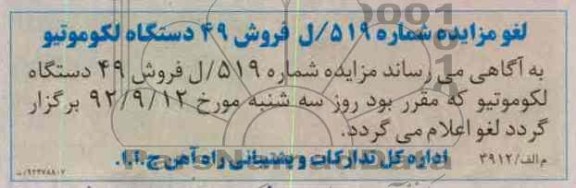 لغو مزایده شماره ۵۱۹/ل فروش ۴۹ دستگاه لکوموتیو
به آگاهی می رساند مزایده شماره ۵۱۹/ل فروش ۴۹ دستگاه
لکوموتیو که مقرر بود روز سه شنبه مورخ ۹۲/۹/۱۲ برگزار
گردد لغو اعلام می گردد.
م الف/۳۹۱۲ اداره کل تدارکات و پشتیبانی راه آهن ج.ا.ا.